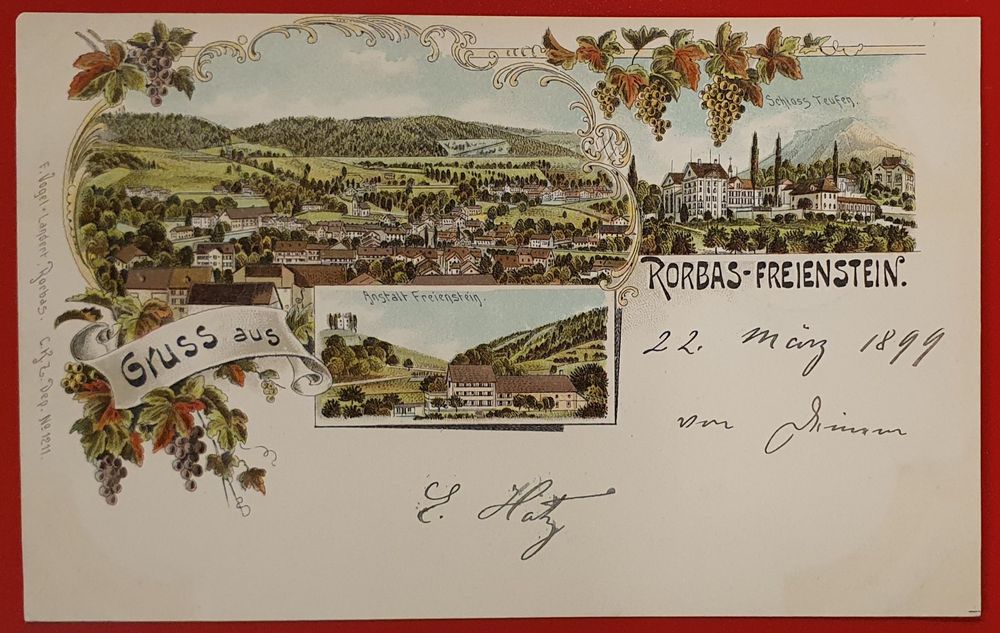 Schloss Teufen.
RORBAS-FREIENSTEIN.
Anstalt Freienstein.
Gruss aus
22. März 1899
von Deinem
E. Hatz
Rorbas. C.K.Z.-Dep. № 1211.